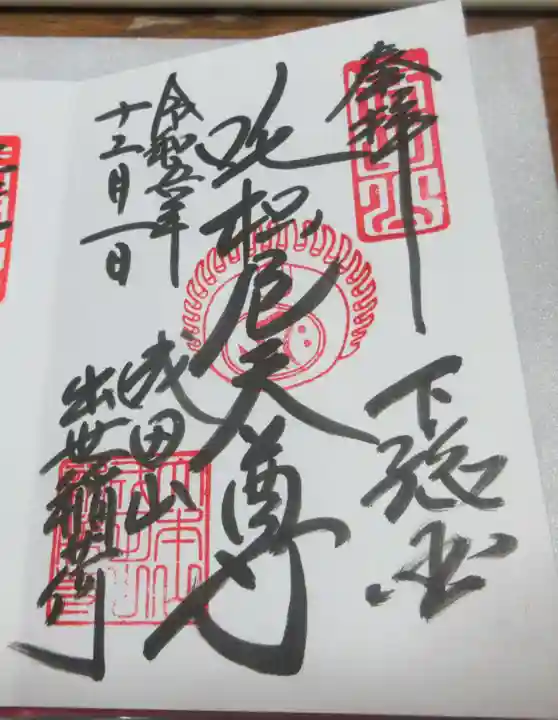 奉拝
下総国
吒枳尼天尊
令和五年
十二月一日
成田山
出世稲荷